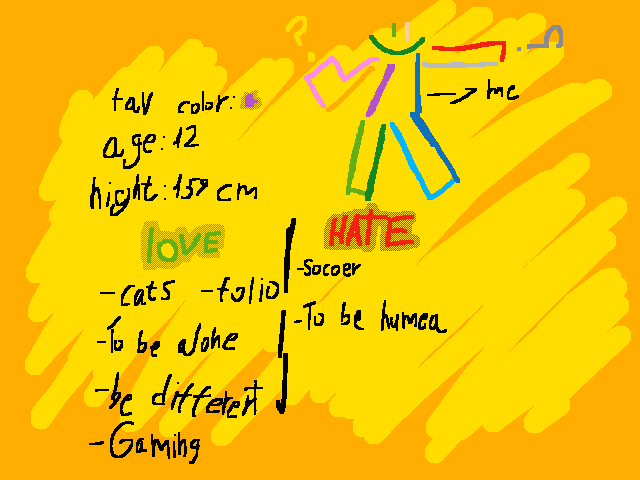 ?
fav color:
age:12
hight:159 cm
→ me
LOVE
HATE
-cats -folio
-Socoer
-To be alone
-To be humea
-be different
-Gaming